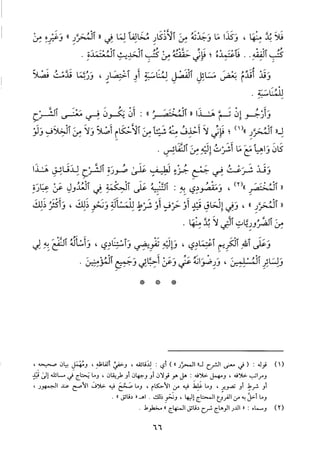 فَلَا بُدَّ مِنْهَا ، وَكَذَا مَا وَجَدْتَهُ مِنَ الْأَذْكَارِ مُخَالِفاً لِمَا فِي « الْمُحَرَّرِ » وَغَيْرِهِ مِنْ
كُتُبِ الْفِقْهِ.. فَاعْتَمِدْهُ ؛ فَإِنِّي حَقَّقْتُهُ مِنْ كُتُبِ الْحَدِيثِ الْمُعْتَمَدَةِ .
وَقَدْ أُقَدِّمُ بَعْضَ مَسَائِلِ الْفَصْلِ لِمُنَاسَبَةٍ أَوِ اخْتِصَارٍ ، وَرُبَّمَا قَدَّمْتُ فَصْلاً
لِلْمُنَاسَبَةِ .
وَأَرْجُو إِنْ تَمَّ هَذَا « الْمُخْتَصَرُ » : أَنْ يَكُونَ فِي مَعْنَى الشَّرْحِ
لِـ« الْمُحَرَّرِ »(١) ؛ فَإِنِّي لَا أَحْذِفُ مِنْهُ شَيْئاً مِنَ الْأَحْكَامِ أَصْلاً وَلَا مِنَ الْخِلَافِ وَلَوْ
كَانَ وَاهِياً مَعَ مَا أَشَرْتُ إِلَيْهِ مِنَ النَّفَائِسِ .
وَقَدْ شَرَعْتُ فِي جَمْعِ جُزْءٍ لَطِيفٍ عَلَى صُورَةِ الشَّرْحِ لِدَقَائِقِ هَذَا
« الْمُخْتَصَرِ »(٢) ، وَمَقْصُودِي بِهِ : التَّنْبِيهُ عَلَى الْحِكْمَةِ فِي الْعُدُولِ عَنْ عِبَارَةِ
« الْمُحَرَّرِ » ، وَفِي إِلْحَاقِ قَيْدٍ أَوْ حَرْفٍ أَوْ شَرْطٍ لِلْمَسْأَلَةِ وَنَحْوِ ذَلِكَ ، وَأَكْثَرُ ذَلِكَ
مِنَ الضَّرُورِيَّاتِ الَّتِي لَا بُدَّ مِنْهَا .
وَعَلَى اللهِ الْكَرِيمِ اعْتِمَادِي ، وَإِلَيْهِ تَفْوِيضِي وَاسْتِنَادِي ، وَأَسْأَلُهُ النَّفْعَ بِهِ لِي
وَلِسَائِرِ الْمُسْلِمِينَ ، وَرِضْوَانَهُ عَنِّي وَعَنْ أَحِبَّائِي وَجَمِيعِ الْمُؤْمِنِينَ .
* * *
(١) قوله : ( في معنى الشرح لـ« المحرر » ) أي : لدقائقه ، وخفيِّ ألفاظه ، ومُهْمَلِ بيان صحيحه ،
ومراتب خلافه ، ومهمل خلافه : هل هو قولان أو وجهان أو طريقان ، وما يَحتاج في مسائله إلى قَيْدٍ
أو شرطٍ أو تصوير ، وما غلط فيه من الأحكام ، وما صَحَّحَ فيه خلافَ الأصحِّ عند الجمهور ،
وما أخلَّ به من الفروع المحتاج إليها ، ونحو ذلك . اهـ « دقائق » .
(٢) وسماه : « الدر الوهاج شرح دقائق المنهاج » مخطوط .
٦٦